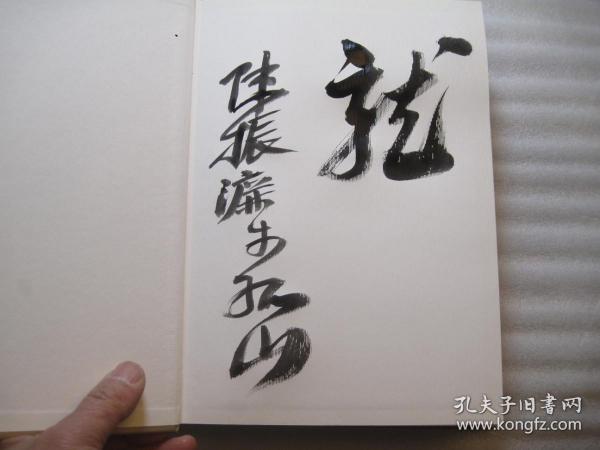 龙
陈振濂于孤山
孔夫子旧书网
www.kongfz.com